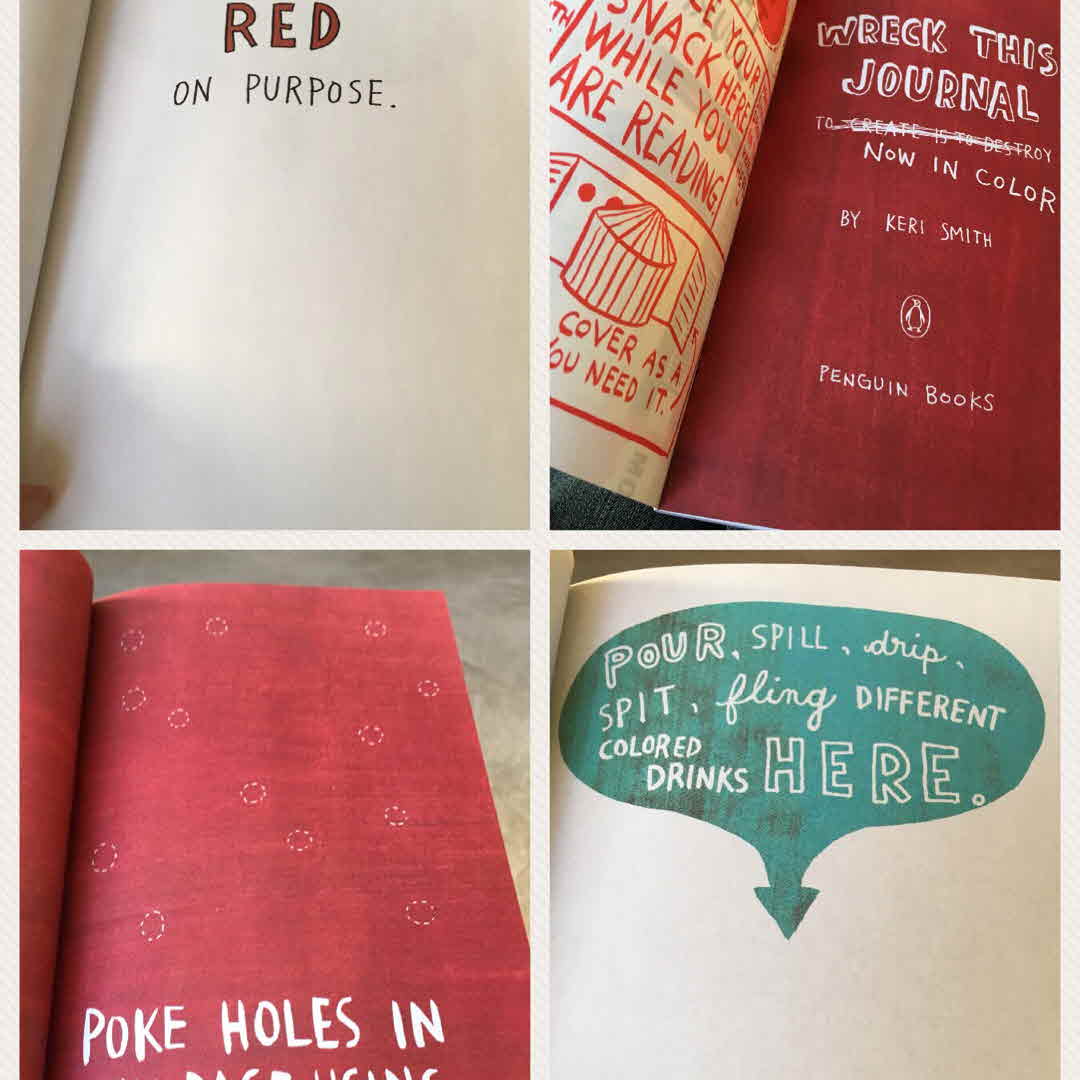 RED
ON PURPOSE.
YOUR
SNACK HERE
WHILE YOU
ARE READING.
COVER AS A
YOU NEED IT.
WRECK THIS
JOURNAL
TO CREATE IS TO DESTROY
NOW IN COLOR
BY KERI SMITH
PENGUIN BOOKS
POKE HOLES IN
USING
POUR, SPILL, drip,
SPIT, fling DIFFERENT
COLORED
DRINKS HERE.